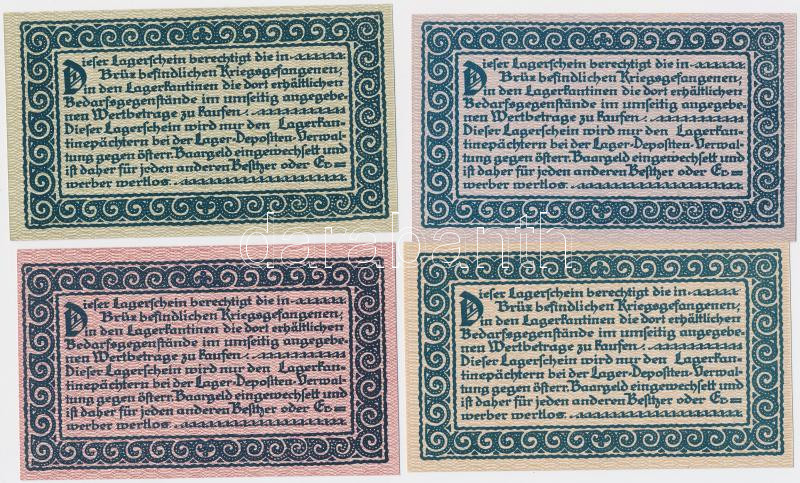 Dieser Lagerschein berechtigt die in
Brüx befindlichen Kriegsgefangenen,
in den Lagerkantinen die dort erhältlichen
Bedarfsgegenstände im umseitig angegebe-
nen Wertbetrage zu kaufen.
Dieser Lagerschein wird nur den Lagerkan-
tinepächtern bei der Lager-Depositen-Verwal-
tung gegen österr. Baargeld eingewechselt und
ist daher für jeden anderen Besitzer oder Er=
werber wertlos.
Dieser Lagerschein berechtigt die in
Brüx befindlichen Kriegsgefangenen,
in den Lagerkantinen die dort erhältlichen
Bedarfsgegenstände im umseitig angegebe-
nen Wertbetrage zu kaufen.
Dieser Lagerschein wird nur den Lagerkan-
tinepächtern bei der Lager-Depositen-Verwal-
tung gegen österr. Baargeld eingewechselt und
ist daher für jeden anderen Besitzer oder Er=
werber wertlos.
darabanth
Dieser Lagerschein berechtigt die in
Brüx befindlichen Kriegsgefangenen,
in den Lagerkantinen die dort erhältlichen
Bedarfsgegenstände im umseitig angegebe-
nen Wertbetrage zu kaufen.
Dieser Lagerschein wird nur den Lagerkan-
tinepächtern bei der Lager-Depositen-Verwal-
tung gegen österr. Baargeld eingewechselt und
ist daher für jeden anderen Besitzer oder Er=
werber wertlos.
Dieser Lagerschein berechtigt die in
Brüx befindlichen Kriegsgefangenen,
in den Lagerkantinen die dort erhältlichen
Bedarfsgegenstände im umseitig angegebe-
nen Wertbetrage zu kaufen.
Dieser Lagerschein wird nur den Lagerkan-
tinepächtern bei der Lager-Depositen-Verwal-
tung gegen österr. Baargeld eingewechselt und
ist daher für jeden anderen Besitzer oder Er=
werber wertlos.